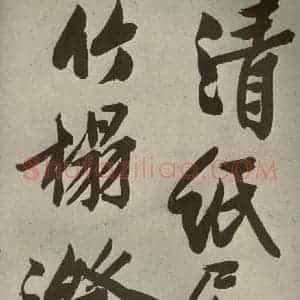 清紙
竹榻
Shufaziliao.COM